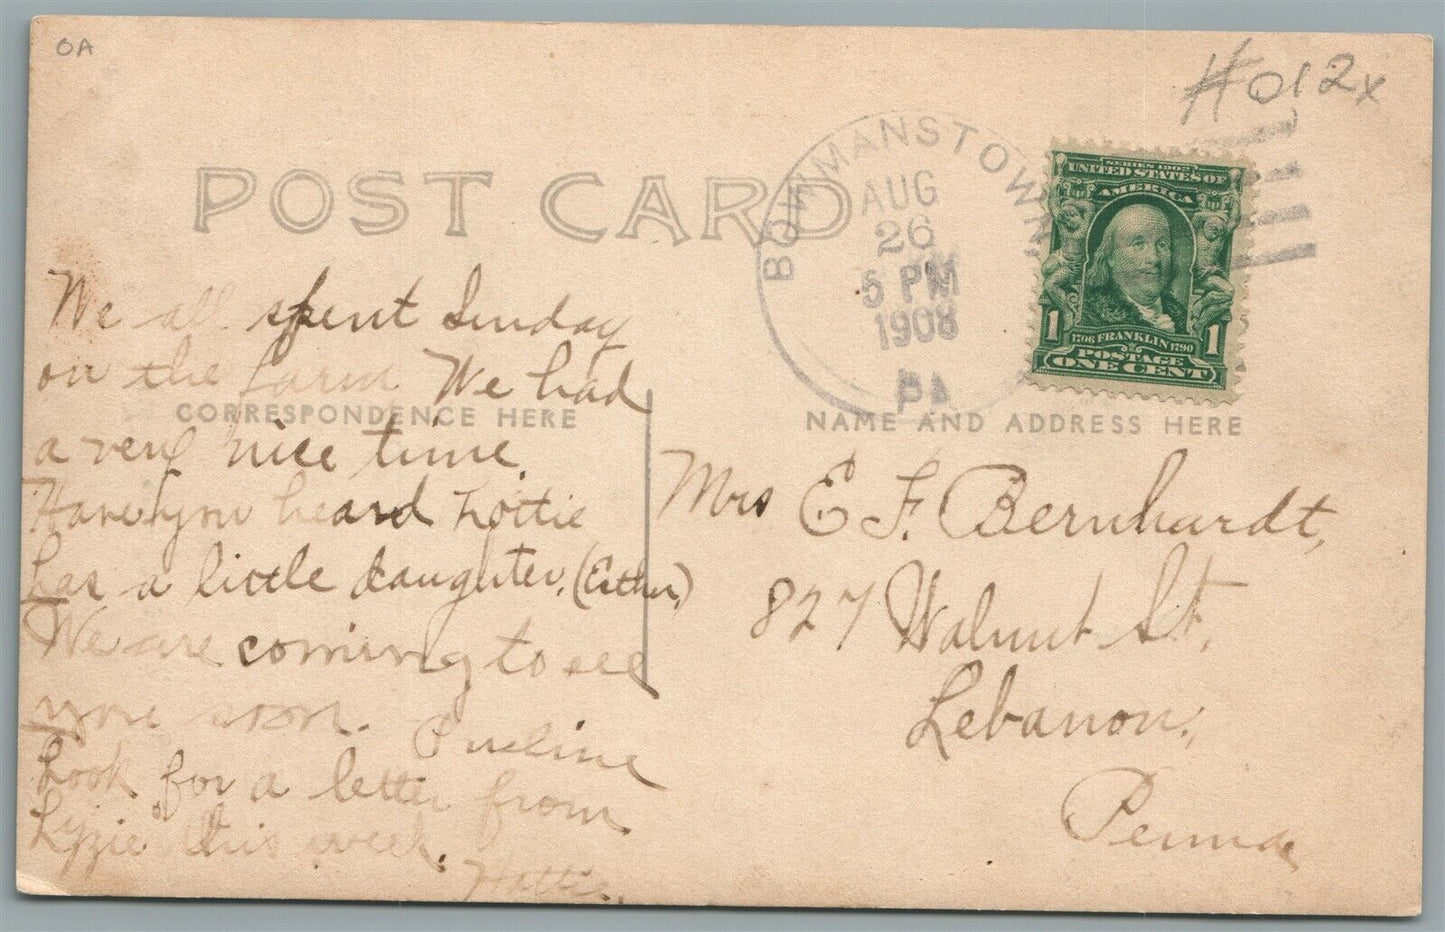 OA
#012x
POST CARD
BOWMANSTOWN
AUG
26
5 PM
1908
PA
SERIES 1902
UNITED STATES OF
AMERICA
1 1706 FRANKLIN 1790 1
POSTAGE
ONE CENT
We all spent Sunday
on the farm We had
CORRESPONDENCE HERE
a very nice time.
Have you heard
has a little daughter. (Esther)
We are coming to see
you soon.
Look for a letter from
Lizzie this week.
Hattie.
NAME AND ADDRESS HERE
Mrs E. F. Bernhardt,
827 Walnut St.
Lebanon,
Penna